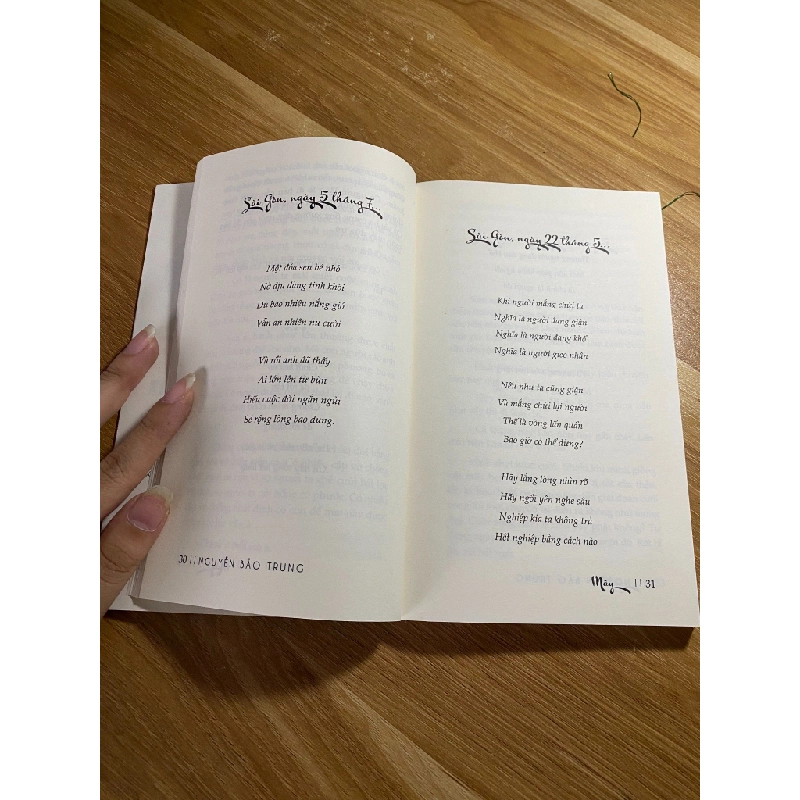 Sài Gòn, ngày 5 tháng 7...
Một đóa sen bé nhỏ
Nở dịu dàng tinh khôi
Dù bao nhiêu nắng gió
Vẫn an nhiên nụ cười
Và rồi anh đã thấy
Ai lớn lên từ bùn
Hiểu cuộc đời ngắn ngủi
Sẽ rộng lòng bao dung.
30 .. NGUYỄN BẢO TRUNG
Sài Gòn, ngày 22 tháng 5...
Khi người mắng chửi ta
Nghĩa là người đang giận
Nghĩa là người đang khổ
Nghĩa là người gieo nhân
Nếu như ta cũng giận
Và mắng chửi lại người
Thế là vòng lẩn quẩn
Bao giờ có thể dừng?
Hãy lắng lòng nhìn rõ
Hãy ngồi yên nghe sâu
Nghiệp kia ta không trả
Hết nghiệp bằng cách nào
Mây 11 31